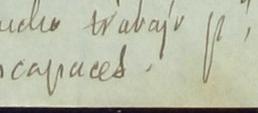 ucho trabajo p,
scapaces.